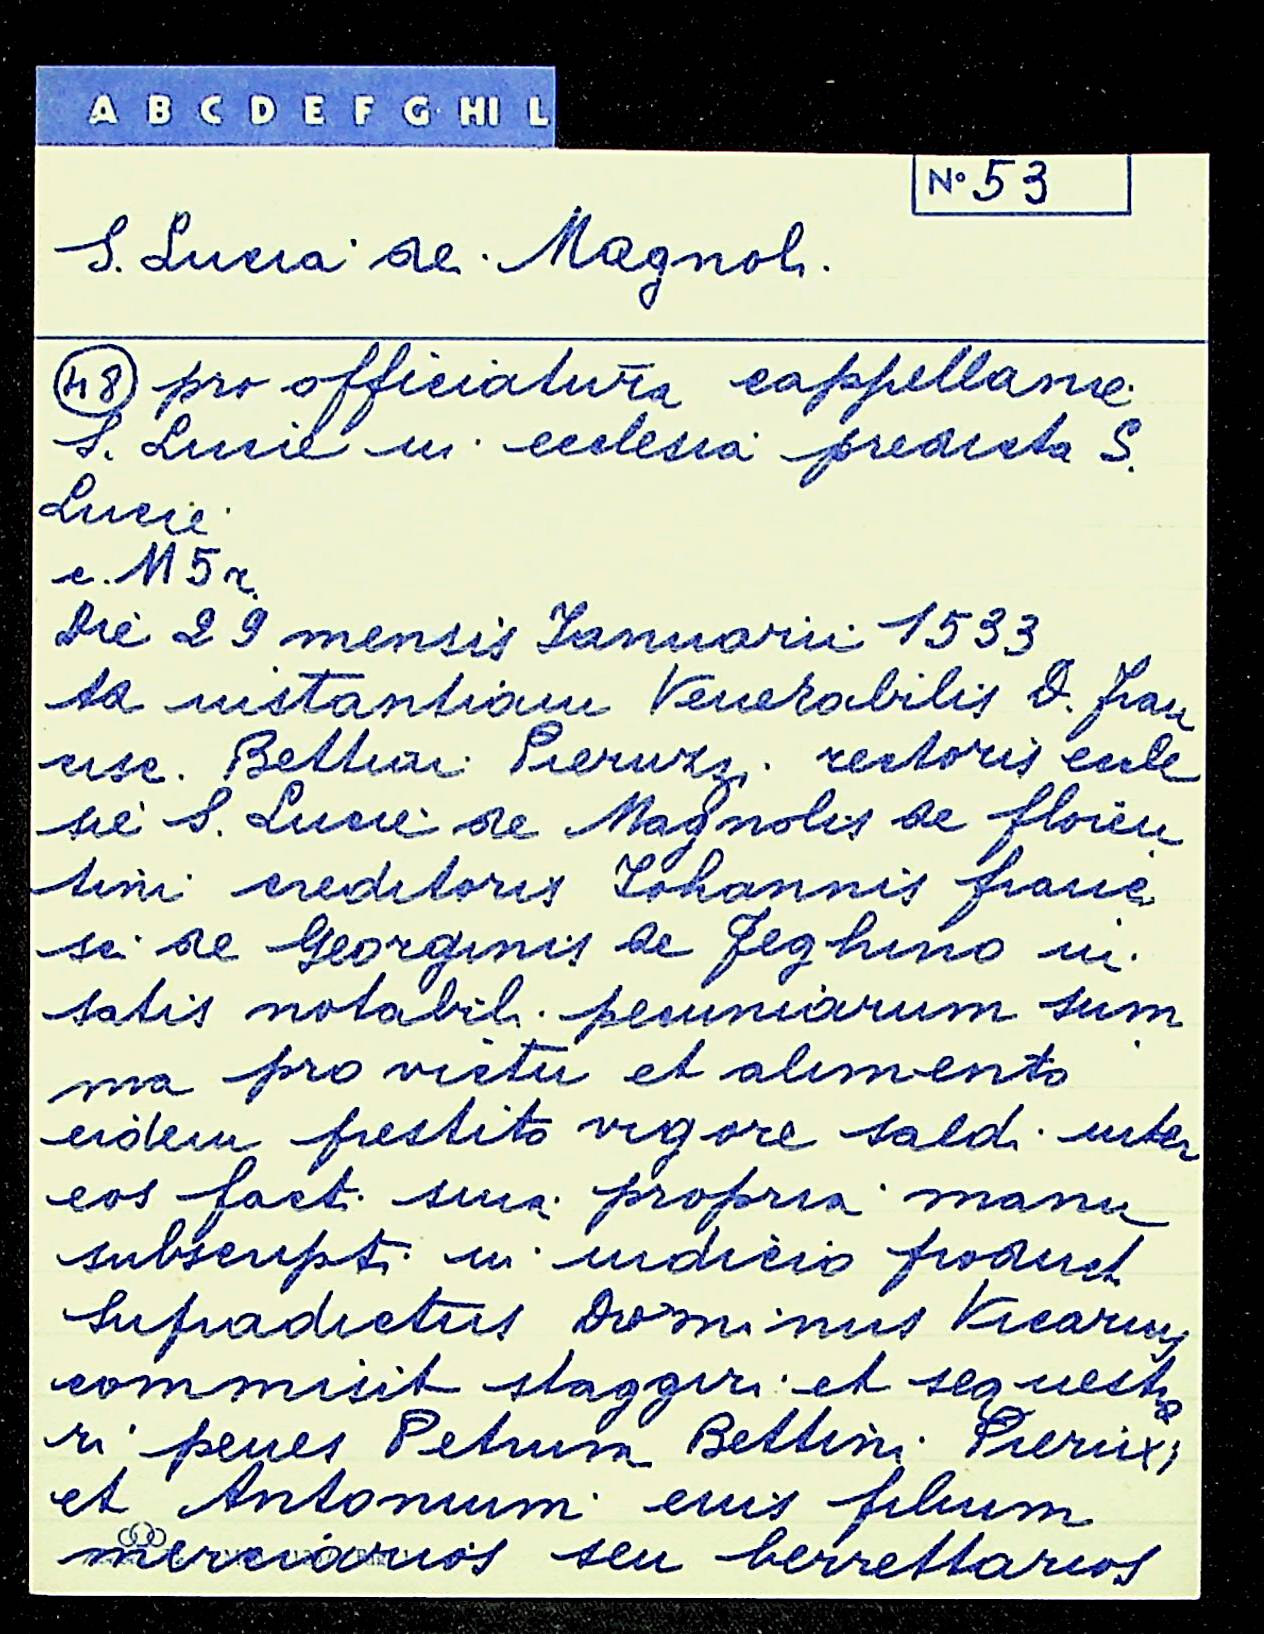 A B C D E F G HI L
N° 53
S. Lucia de Magnoli.
48 pro officiatura cappellanie
S. Lucie in ecclesia predicta S.
Lucie
c. 115 r.
Die 29 mensis Ianuarii 1533
Ad instantiam Venerabilis D. Fran
cisc. Bettini Pieruzzi rectoris eccle
sie S. Lucie de Magnolis de floren
tini creditoris Iohannis franci
sci de Georginis de Feghino in
satis notabili pecuniarum sum
ma pro victu et alimento
eidem prestito vigore saldi inter
eos facti sua propria manu
subscripti in iudicio product.
Supradictus Dominus Vicarius
commisit staggiri et sequest
ri penes Petrum Bettini Pieruzi
et Antonium eius filium
merciarios seu berrettarios